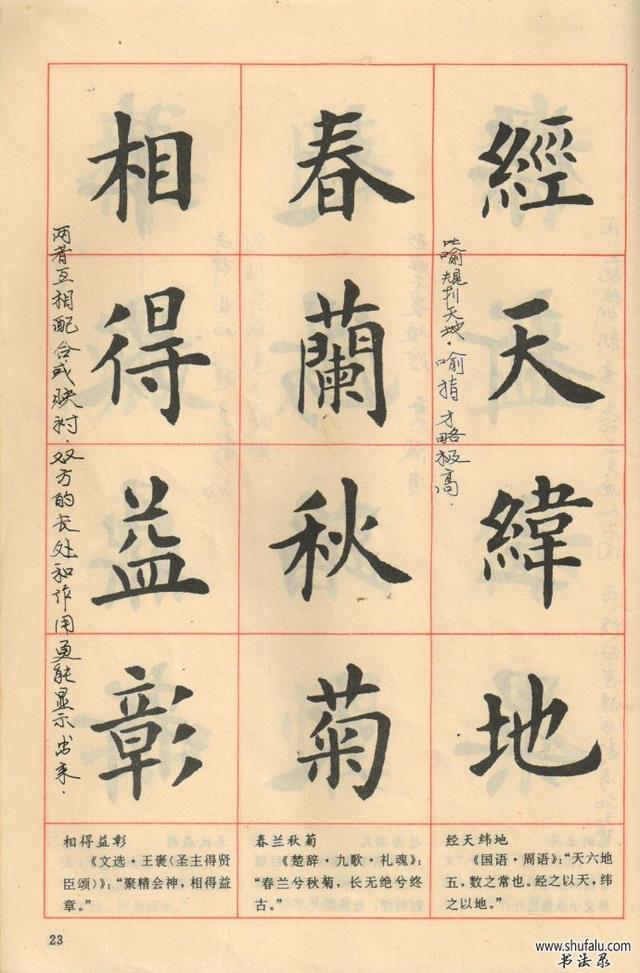 經天緯地
比喻规划天地。喻指才略极高.
春蘭秋菊
相得益彰
两者互相配合或映衬.双方的长处和作用更能显示出来.
经天纬地
《国语·周语》:“天六地
五,数之常也。经之以天,纬
之以地。”
春兰秋菊
《楚辞·九歌·礼魂》:
“春兰兮秋菊,长无绝兮终
古。”
相得益彰
《文选·王褒(圣主得贤
臣颂)》:“聚精会神,相得益
章。”
23
www.shufalu.com
书法录